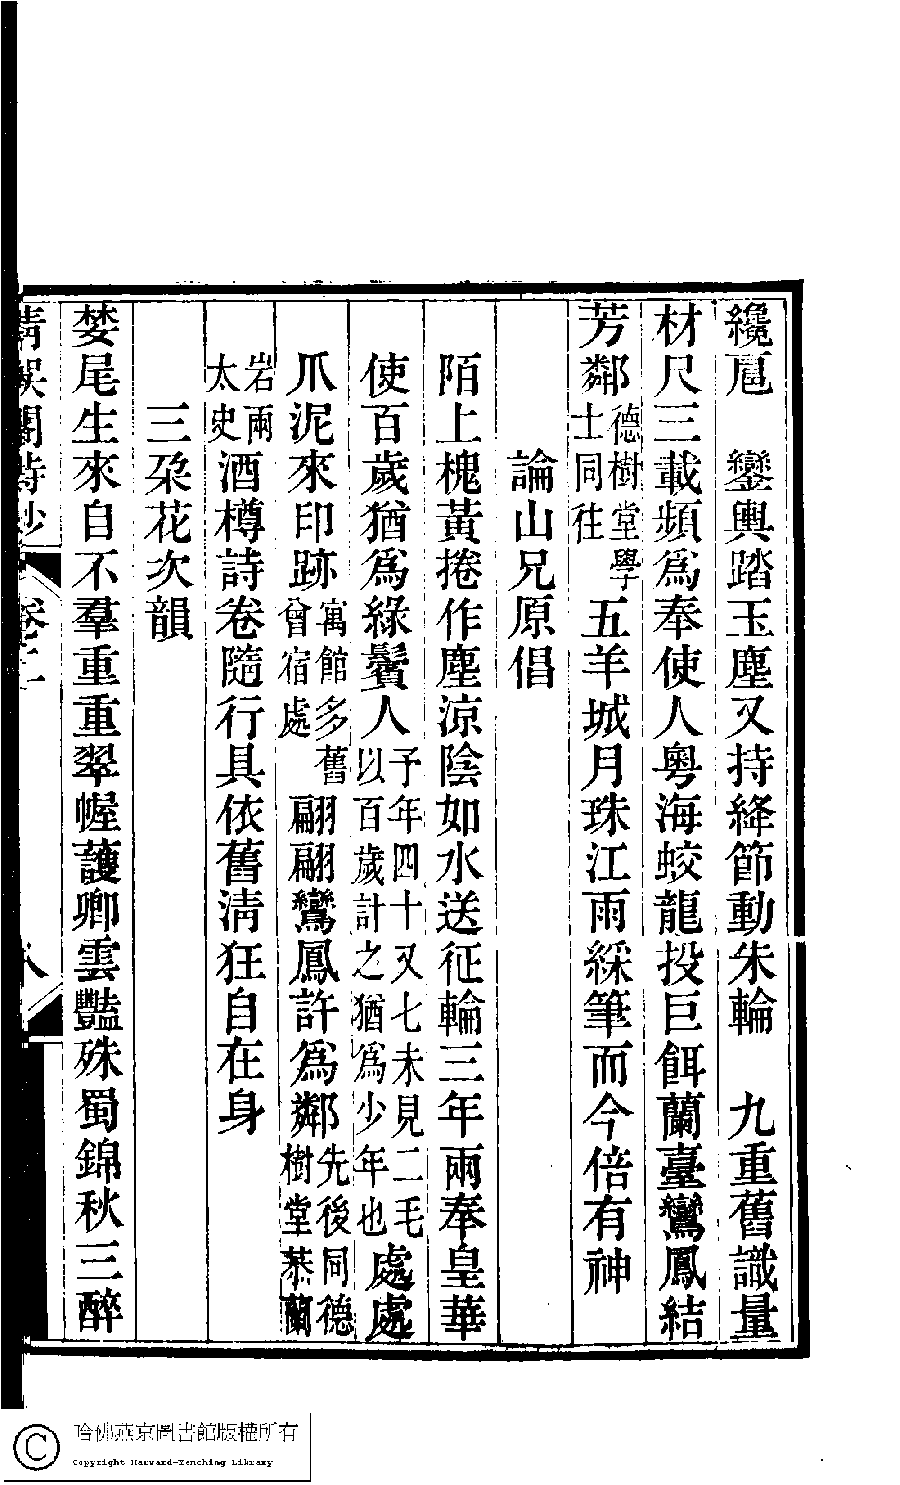 纔扈　鑾輿踏玉塵又持絳節動朱輪　九重舊識量
材尺三載頻為奉使人粵海蛟龍投巨餌蘭臺鸞鳳結
芳鄰德樹堂學士同往五羊城月珠江雨綵筆而今倍有神
論山兄原倡
陌上槐黃捲作塵涼陰如水送征輪三年兩奉皇華
使百歲猶為綠鬢人予年四十又七未見二毛以百歲計之猶為少年也處處
爪泥來印跡寓館多舊曾宿處翩翩鸞鳳許為鄰先後同德樹堂菾蘭
岩兩太史酒樽詩卷隨行具依舊清狂自在身
三朶花次韻
婪尾生來自不羣重重翠幄護卿雲豔殊蜀錦秋三醉
清娛閣詩鈔
卷二
八
哈佛燕京圖書館版權所有
Copyright Harvard-Yenching Library